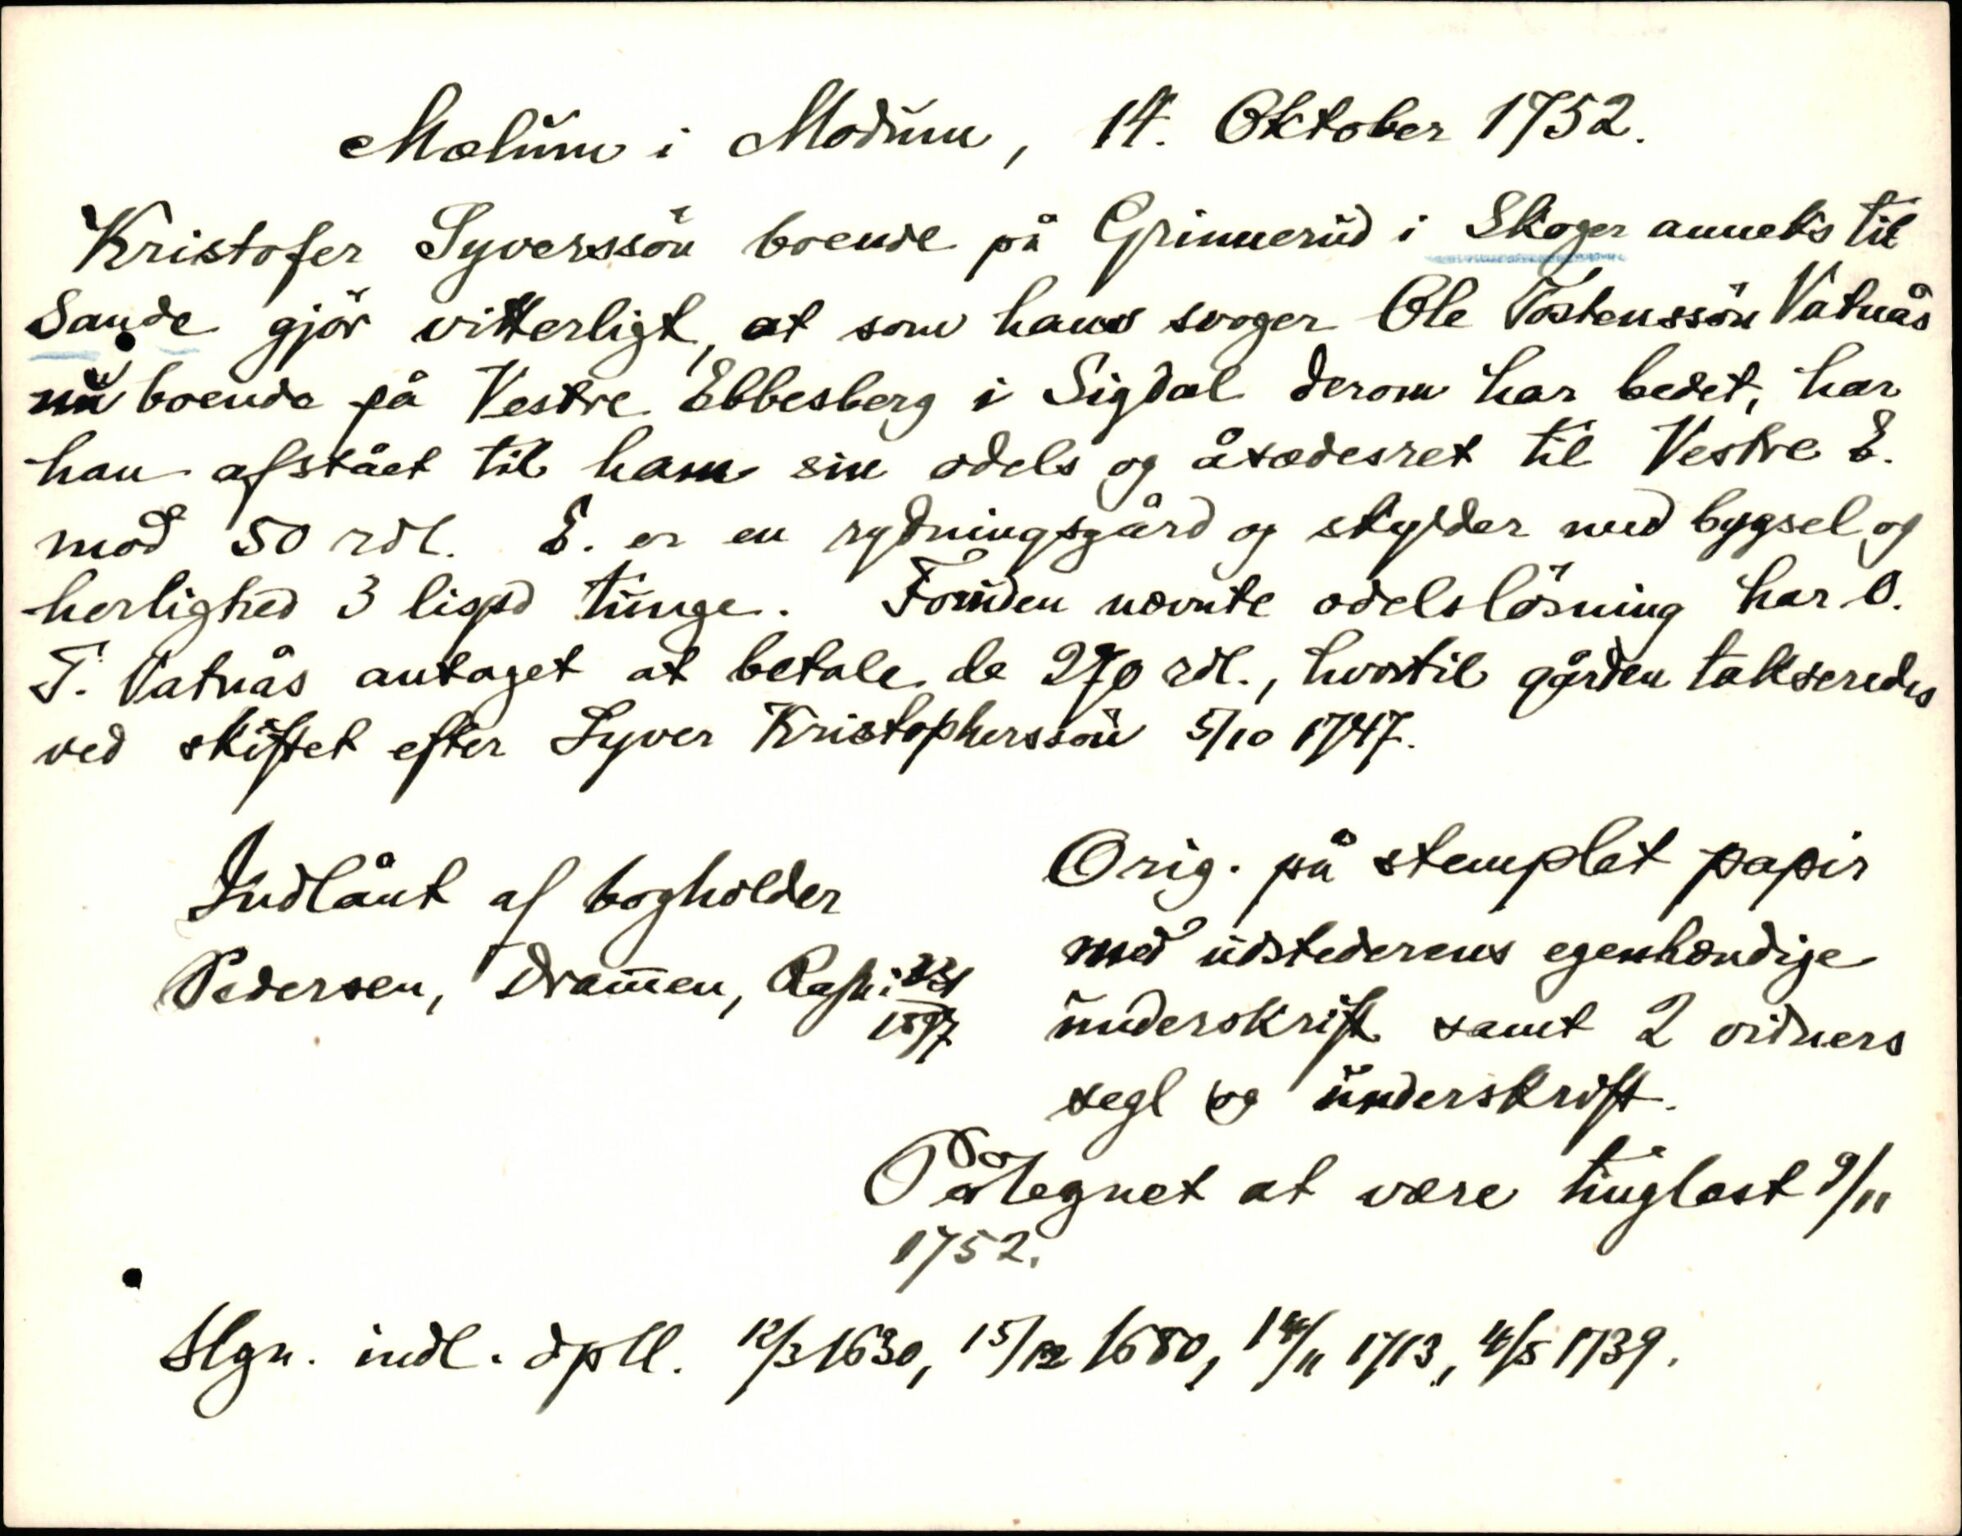 Mælum i Modum, 14. Oktober 1752.
Kristofer Syverssön boende på Grinnerud i Skoger anneks til
Sande gjör vitterligt, at som hans svoger Ole Tostenssön Vatnås
nu boende på Vestre Ebbesberg i Sigdal derom har bedet, har
han afstået til ham sin odels og åsædesret til Vestre E.
mod 50 rdl. E. er en rydningsgård og skylder med bygsel og
herlighed 3 lispd tunge. Foruden nævnte odelslösning har O.
T. Vatnås antaget at betale de 270 rdl., hvortil gården takseredes
ved skiftet efter Syver Kristopherssön 5/10 1747.
Indlånt af bogholder
Pedersen, Drammen,
1897
Orig. på stemplet papir
med udstederens egenhændige
underskrift samt 2 vidners
segl og underskrift.
Påtegnet at være tinglæst 9/11
1752.
Slgn. indl. dpll. 12/3 1630, 15/12 1680, 14/11 1713, 4/5 1739.